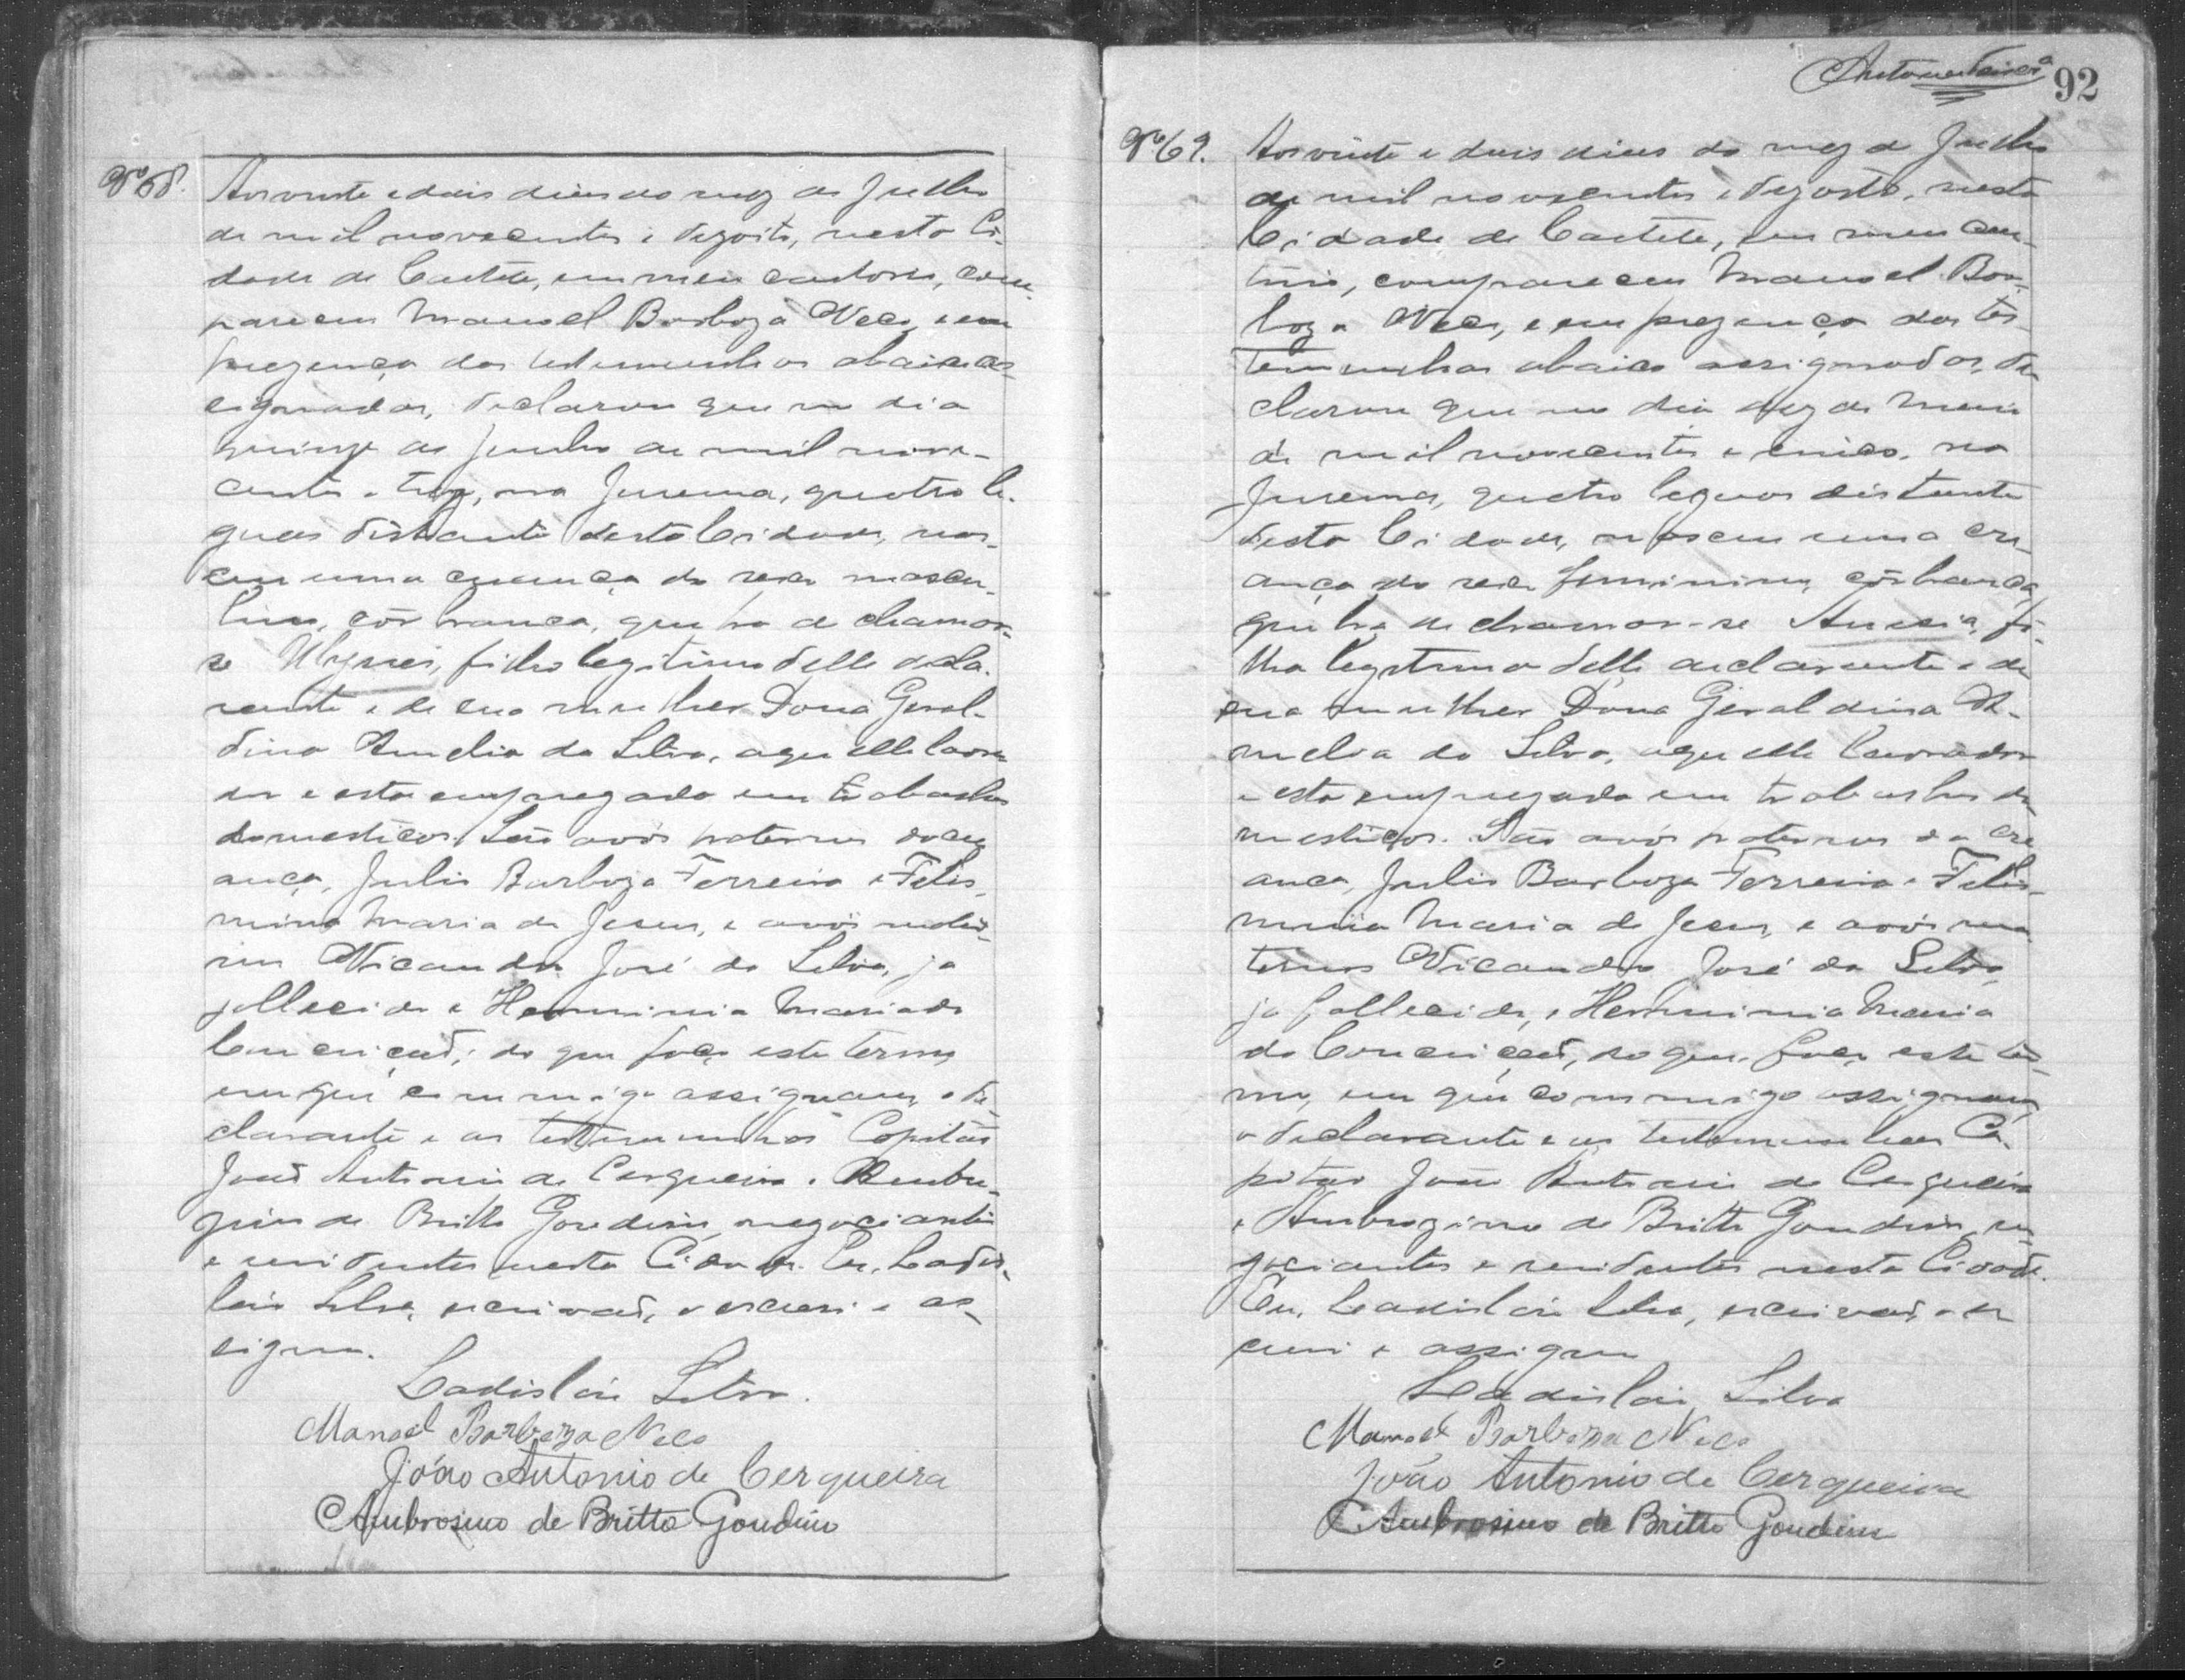 Nº 68.
Aos vinte e dois dias do mez de Julho
de mil novecentos e dezoito, nesta Ci-
dade de Caeteté, em meu cartorio, com-
pareceu Manoel Barboza Neco, e em
prezença das testemunhas abaixo as-
signadas, declarou que no dia
quinze de Junho de mil nove-
centos e trez, na Jurema, quatro le-
guas distante desta Cidade, nas-
ceu uma creança do sexo mascu-
lino, côr branca, que ha de chamar-
se Ulysses, filho legitimo delle decla-
rante e de sua mulher Dona Geral-
dina Amelia da Silva, aquelle lavra-
dor e esta empregada em trabalhos
domesticos. São avós paternos da cre-
ança, Julio Barboza Ferreira e Felis-
mina Maria de Jesus, e avós mater-
nos Nicandro José da Silva, ja
fallecido e Herminia Maria da
Conceição; do que faço este termo,
em que commigo assignam, o de-
clarante e as testemunhas Capitão
João Antonio de Cerqueira e Ambro-
zino de Britto Gondim, negociantes
e residentes nesta Cidade. Eu, Ladis-
láu Silva, escrivão, o escrevi e as-
signo.
Ladisláu Silva.
Manoel Barboza Neco
João Antonio de Cerqueira
Ambrosino de Britto Gondim
92
Nº 69.
Aos vinte e dois dias do mez de Julho
de mil novecentos e dezoito, nesta
Cidade de Caeteté, em meu car-
torio, compareceu Manoel Bar-
boza Neco, e em prezença das tes-
temunhas abaixo assignadas, de-
clarou que no dia dez de Maio
de mil novecentos e cinco, na
Jurema, quatro leguas distante
desta Cidade, nasceu uma cre-
ança do sexo feminino, côr branca,
que ha de chamar-se Anisia, fi-
lha legitima delle declarante e de
sua mulher Dona Geraldina A-
melia da Silva, aquelle lavrador
e esta empregada em trabalhos do-
mesticos. São avós paternos da cre-
ança, Julio Barboza Ferreira e Felis-
mina Maria de Jesus, e avós ma-
ternos Nicandro José da Silva,
ja fallecido, e Herminia Maria
da Conceição, do que faço este ter-
mo, em que commigo assignam,
o declarante e as testemunhas Ca-
pitão João Antonio de Cerqueira
e Ambrozino de Britto Gondim, ne-
gociantes e residentes nesta Cidade.
Eu, Ladisláu Silva, escrivão, o es-
crevi e assigno
Ladisláu Silva
Manoel Barboza Neco
João Antonio de Cerqueira
Ambrosino de Britto Gondim